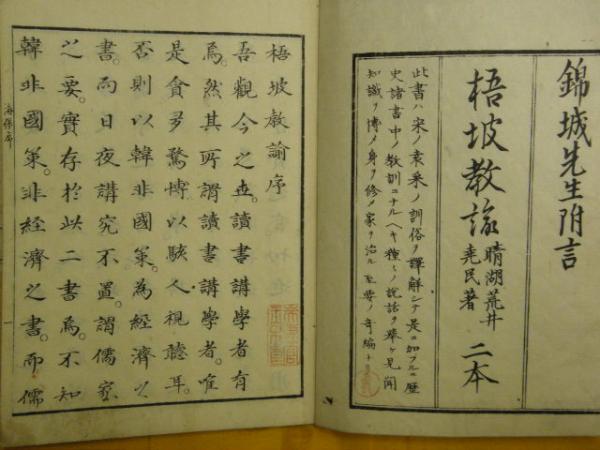 錦城先生附言
梧坡教諭 晴湖荒井堯民著 二本
此書ハ宋ノ袁采ノ訓俗ヲ譯解シテ是ニ加フルニ歴
史諸書中ノ教訓ニナルヘキ種〻ノ説話ヲ舉ケ見聞
知識ヲ博メ身ヲ修メ家ヲ治ル至要ノ奇編ナリ
梧坡教諭序
吾觀今之世。讀書講學者有
焉。然其所謂讀書講學者。唯
是貪多驚博以駭人視聽耳。
否則以韓非國策。為經濟之
書。而日夜講究不置。謂儒家
之要。實存於此二書焉。不知
韓非國策。非経濟之書。而儒
海保序